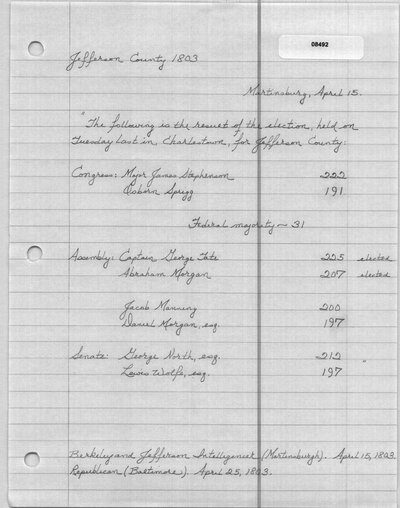 08492
Jefferson County 1803
Martinsburg, April 15.
"The following is the result of the election, held on
Tuesday last in Charlestown, for Jefferson County:
Congress: Major James Stephenson 222
Osborn Sprigg 191
Federal majority ~ 31
Assembly: Captain George Tate 225 elected
Abraham Morgan 207 elected
Jacob Manning 200
Daniel Morgan, esq. 197
Senate: George North, esq. 212 "
Lewis Wolfe, esq. 197
Berkeley and Jefferson Intelligencer (Martinsburgh). April 15, 1803.
Republican (Baltimore). April 25, 1803.